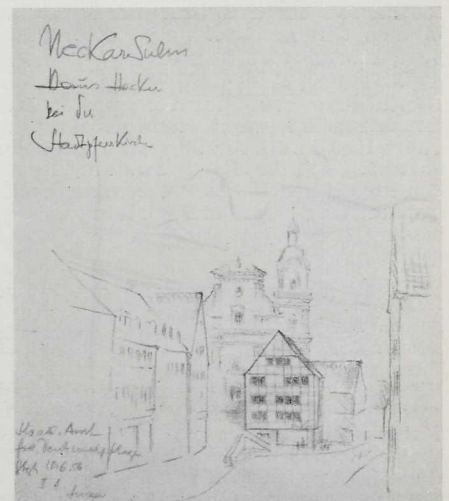 Neckarsulm
Haus Hecker
bei der
Stadtpfarrkirche
Staatl. Amt
f. Denkmalpflege
Stgt. 18.6.56